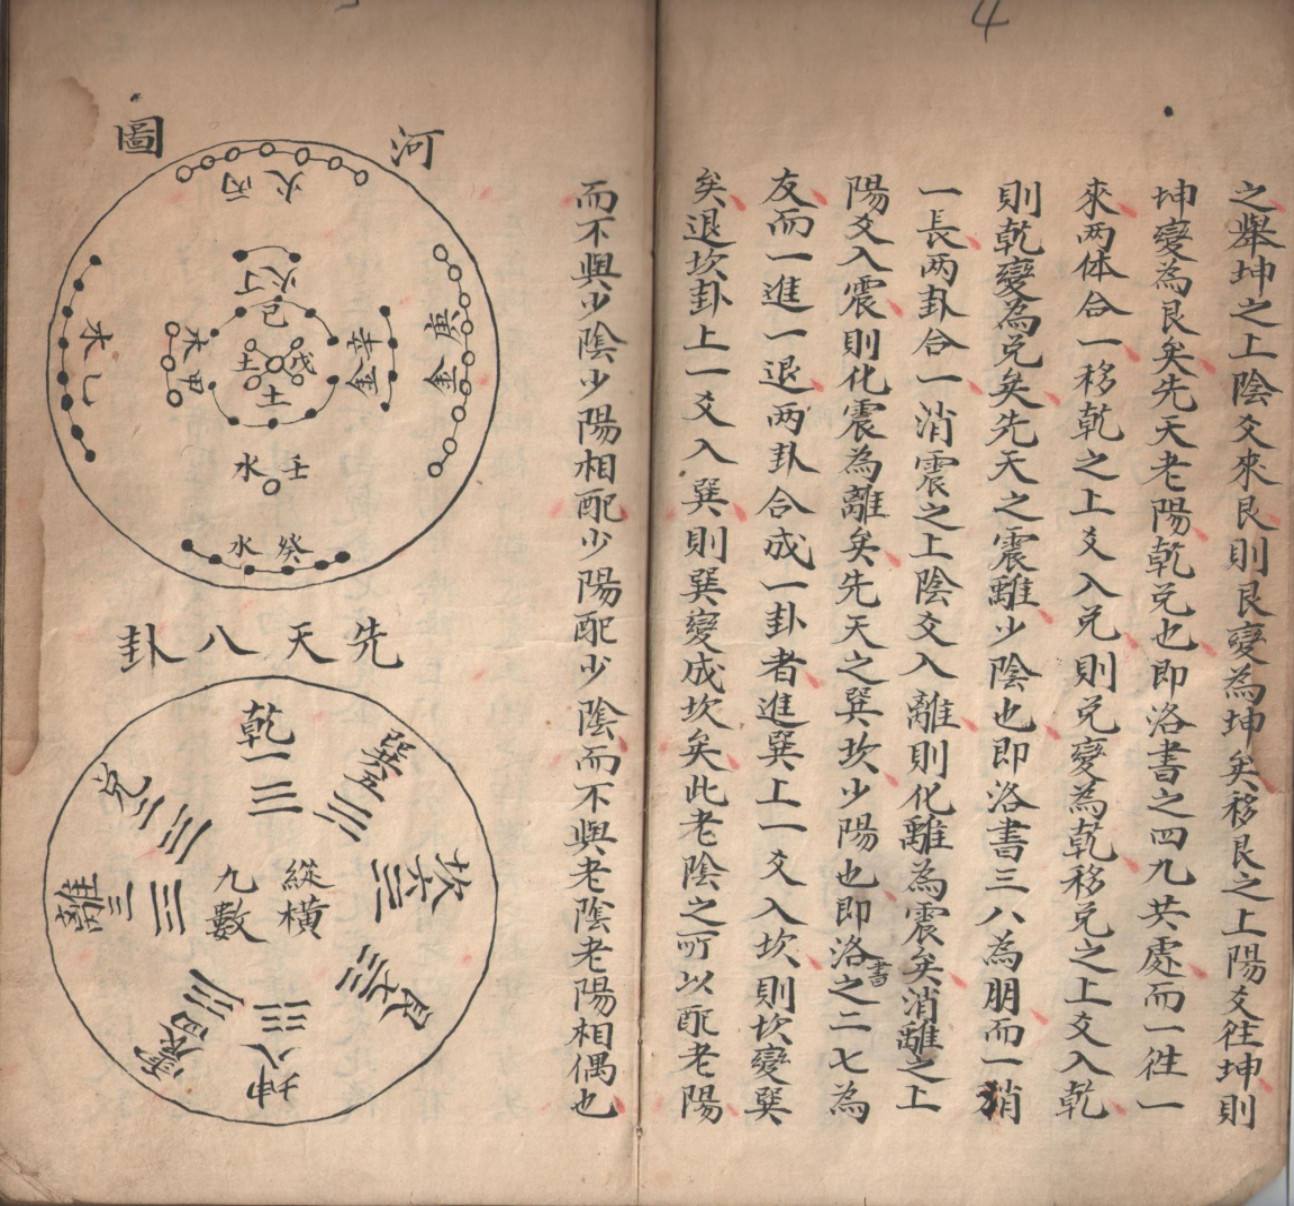 4
之舉坤之上陰爻來艮則艮變為坤矣移艮之上陽爻徃坤則
坤變為艮矣先天老陽乾兑也即洛書之四九共處而一徃一
來两体合一移乾之上爻入兑則兑變為乾移兑之上爻入乾
則乾變為兑矣先天之震離少陰也即洛書三八為朋而一消
一長两卦合一消震之上陰爻入離則化離為震矣消離之上
陽爻入震則化震為離矣先天之巽坎少陽也即洛書之二七為
友而一進一退两卦合成一卦者進巽上一爻入坎則坎變巽
矣退坎卦上一爻入巽則巽變成坎矣此老陰之所以配老陽
而不與少陰少陽相配少陽配少陰而不與老陰老陽相偶也
河圖
火丙
火丁
己
戊
土
土
木甲
木乙
辛金
庚金
水壬
水癸
先天八卦
乾一
兑二
離三
震四
巽五
坎六
艮七
坤八
縱橫
九數